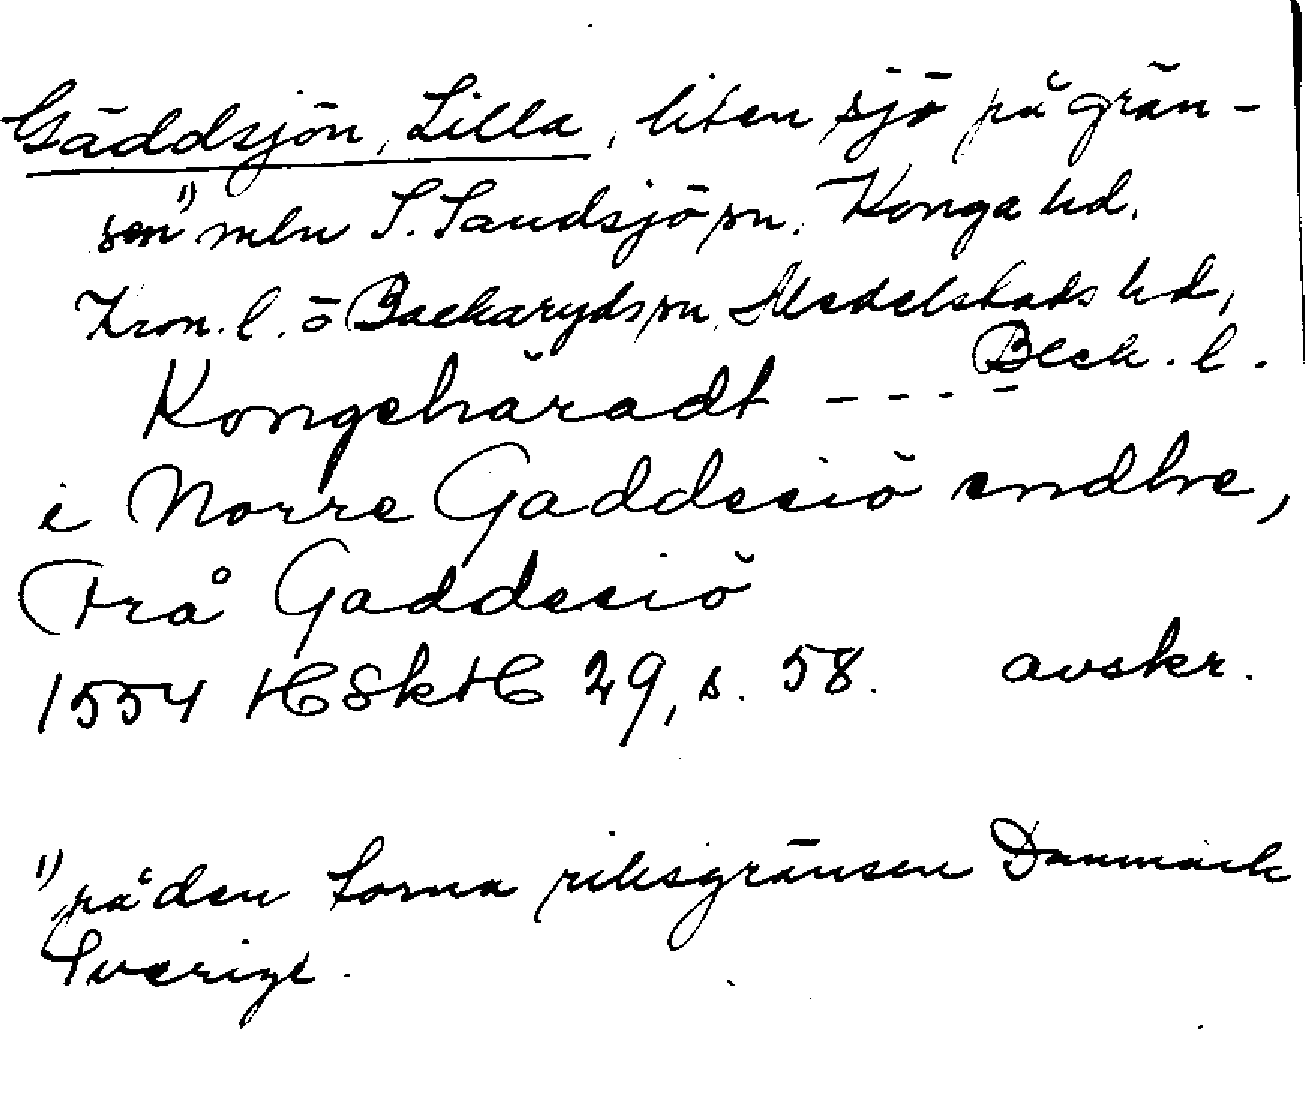 Gäddsjön, Lilla, liten sjö på grän-
sen 1) mln S. Sandsjö sn, Konga hd,
Kron. l. o Backaryds sn, Medelstads hd,
Blek. l.
Kongehäradt ----
i Norre Gaddesiö endhe,
Frå Gaddesiö
1554 HSkH 29, s. 58. avskr.
1) på den forna riksgränsen Danmark
Sverige.